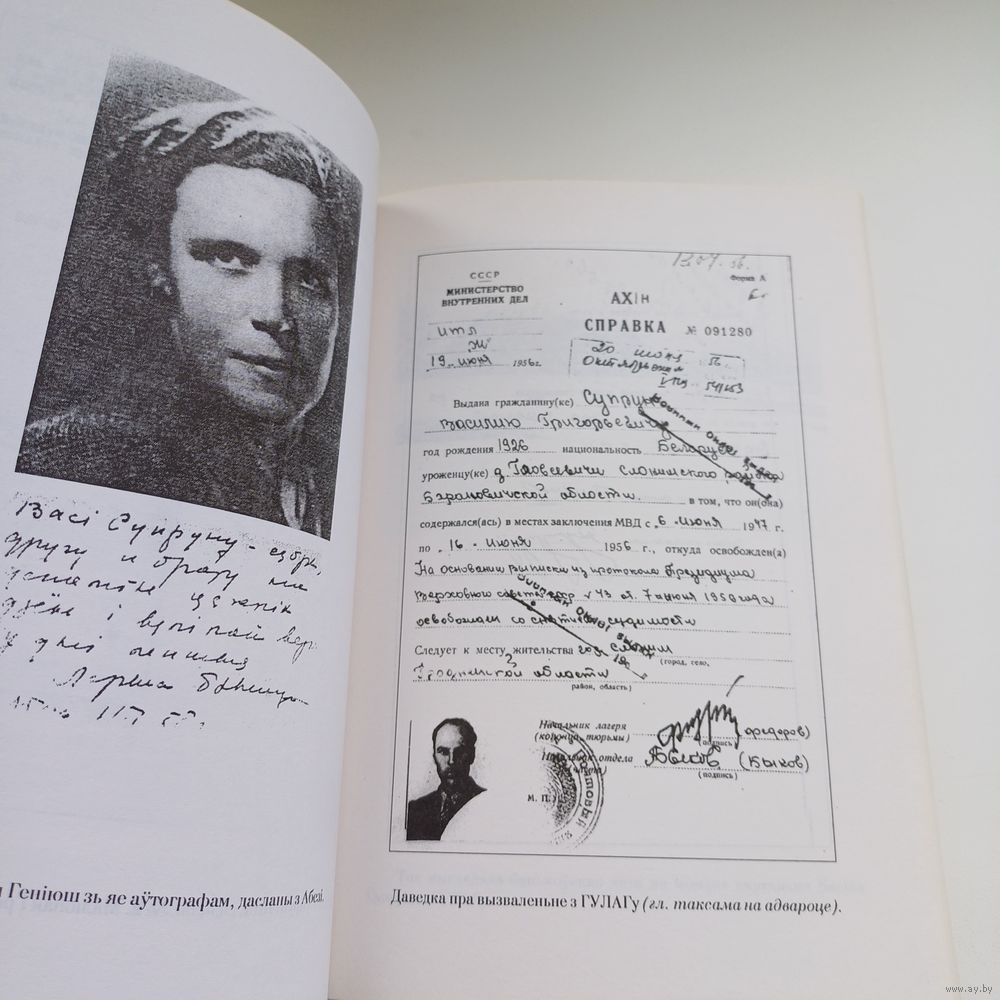 Васі Супруну - сябру,
другу и брату на
дзене і вялікай веры
у дні
Лариса
Геніюш зь яе аўтографам, дасланы з Абезі.
13.07. 56.
СССР
МИНИСТЕРСТВО
ВНУТРЕННИХ ДЕЛ
Форма А
АХ/н
СПРАВКА № 091280
ИТЛ
Ж
19 июня 1956 г.
20 июня 56
Октябрьским
VПЖ 541153
Выдана гражданину(ке) Супрун
Василию Григорьевичу
год рождения 1926 национальность Беларус
уроженцу(ке) д. Слонимского района
Барановичской области в том, что он(она)
содержался(ась) в местах заключения МВД с „6 июня 1947 г.
по „16 июня 1956 г., откуда освобожден(а)
На основании выписки из протокола Президиума
Верховного совета СССР № 43 от 7 июня 1956 года
освобожден со снятием судимости
Следует к месту жительства гор Слоним
(город, село,
Гродненской области
район, область)
Начальник лагеря
(колонии, тюрьмы) (Федоров)
(подпись)
Начальник отдела (Быков)
(подпись)
М. П.
Почтовый
Даведка пра вызваленьне з ГУЛАГу (гл. таксама на адвароце).
www.ay.by